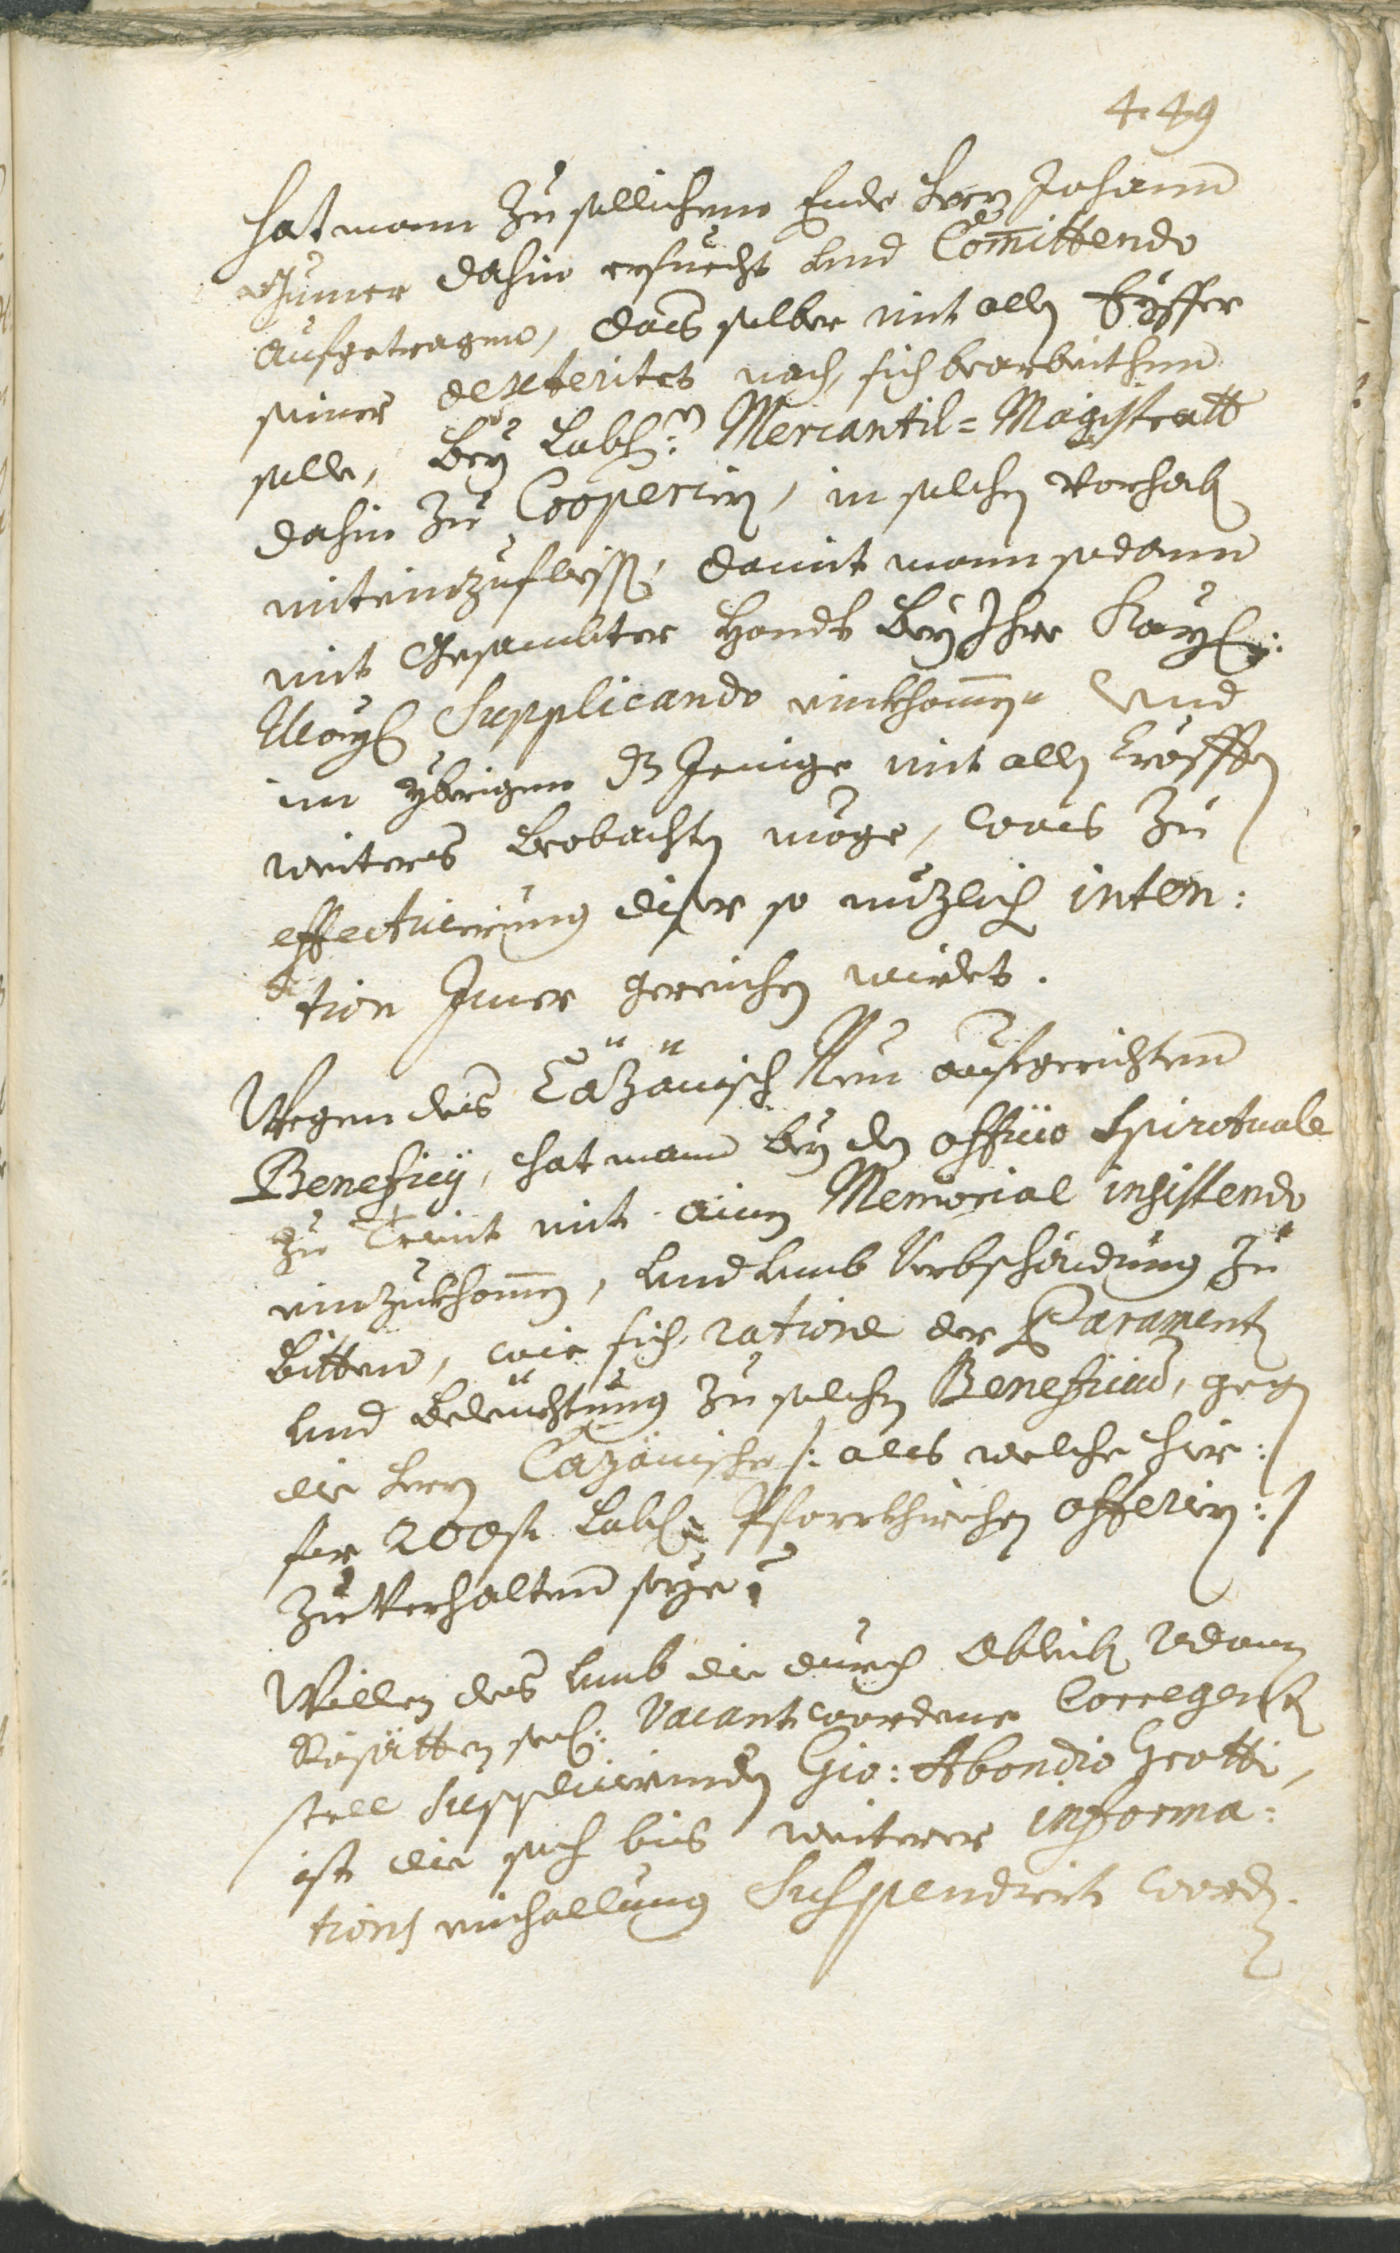 449
hat mann zu sollichem Ende herrn Johann
Gumer dahin ersuecht und Comittendo
aufgetragen, das selber mit allen Eyffer
seiner dexteritet nach, sich bearbeithen
solle, bey Lobl: Mercantil=Magistratt
dahin zu Cooperirn, in solchen vorhab
miteinzufliess, damit mann sodann
mit Gesambter handt bey Ihro Kayl:
May: Supplicando einkhomen und
im ybrigen dz Jenige mit allen Cräfften
weiters beobachten möge, was zu
effectuierung diser so nuzlich inten:
tion Imer gereichen wirdet.
Wegen des Cazänisch Neu aufgerichten
Beneficij, hat mann bey den officio Spirituale
zu Trient mit ainem Memorial insistendo
einzukhomen, und umb Verbschaidung zu
bitten, wie sich ratione der Parament
und beleüchtung zu solchen Beneficium, gegen
die herrn Cazänischen /: als welche hier:
für 200 fl. Lobl: Pfarrkhirchen offerirn :/
zu verhalten seye?
Willen des umb die durch Ableib Adam
Rösätten seel: Vacant wordene Corregenst
stell Supplicierenden Gio: Abondio Grotti,
ist die sach bis weiterer informa:
tions einhollung Suspendiert word.